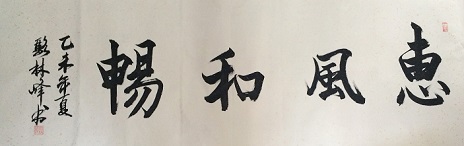 惠風和暢
乙未年夏
駱林峰书